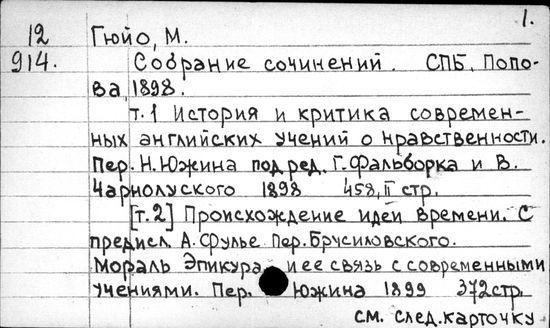 1.
12 Гюйо, М.
914. Собрание сочинений. СПБ, Попо-
ва, 1898.
т.1 История и критика современ-
ных английских учений о нравственности.
Пер. Н. Южина под ред. Г. Фальборка и В.
Чарнолуского 1898 458, II стр.
[т.2] Происхождение идеи времени. С
предисл А. Фулье Пер. Брусиловского.
Мораль Эпикура и ее связь с современными
учениями. Пер. Южина 1899 372стр.
см. след. карточку